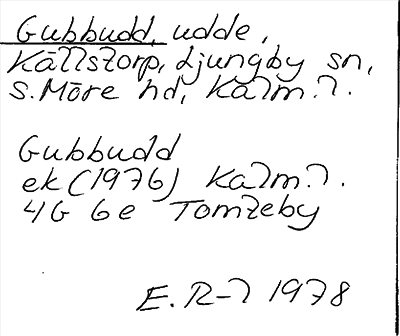 Gubbudd, udde,
Källstorp, Ljungby sn,
S. Möre hd, Kalm. l.
Gubbudd
ek (1976) Kalm. l.
4G 6e Tomteby
E. R-l 1978